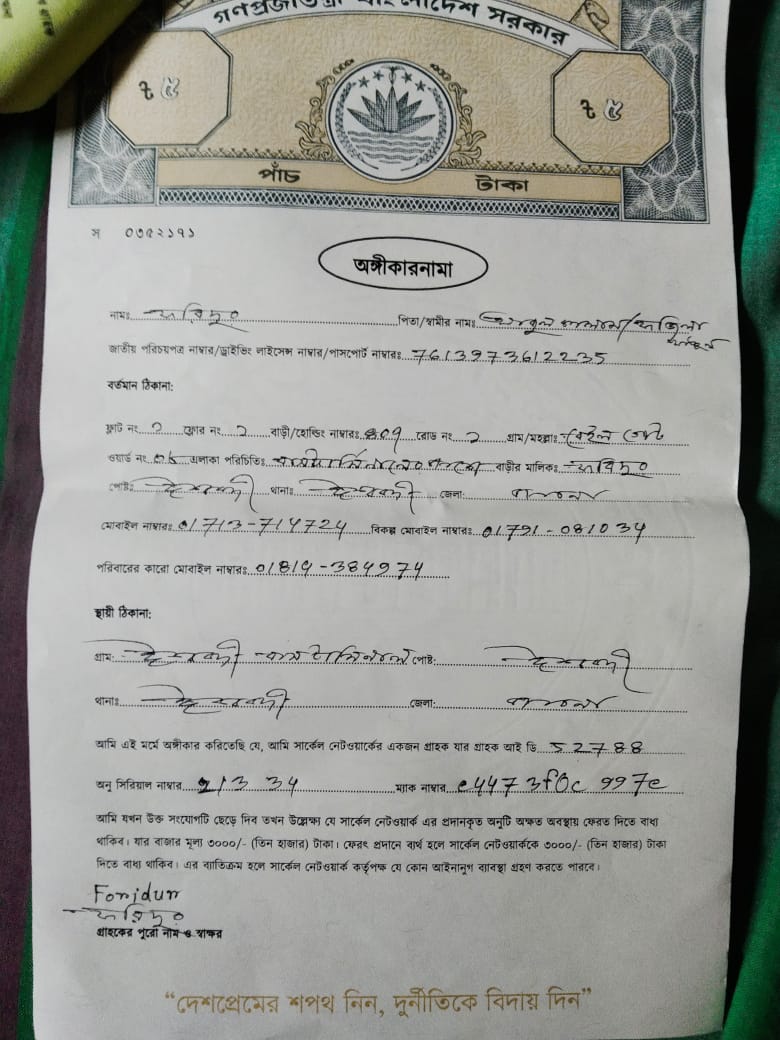 গণপ্রজাতন্ত্রী বাংলাদেশ সরকার
৳ ৫ ৳ ৫
পাঁচ টাকা
স ০৩৫২১৭১
অঙ্গীকারনামা
নামঃ ফরিদুল পিতা/স্বামীর নামঃ
জাতীয় পরিচয়পত্র নাম্বার/ড্রাইভিং লাইসেন্স নাম্বার/পাসপোর্ট নাম্বারঃ 7613973612235
বর্তমান ঠিকানা:
ফ্লাট নং ফ্লোর নং বাড়ী/হোল্ডিং নাম্বারঃ রোড নং গ্রাম/মহল্লাঃ
ওয়ার্ড নং এলাকা পরিচিতিঃ বাড়ীর মালিকঃ ফরিদুল
পোষ্টঃ ঈশ্বরদী থানাঃ ঈশ্বরদী জেলাঃ পাবনা
মোবাইল নাম্বারঃ 01713-714724 বিকল্প মোবাইল নাম্বারঃ 01791-081034
পরিবারের কারো মোবাইল নাম্বারঃ 01819-384974
স্থায়ী ঠিকানা:
গ্রাম: ঈশ্বরদী বাসটার্মিনাল পোষ্ট: ঈশ্বরদী
থানাঃ ঈশ্বরদী জেলা: পাবনা
আমি এই মর্মে অঙ্গীকার করিতেছি যে, আমি সার্কেল নেটওয়ার্কের একজন গ্রাহক যার গ্রাহক আই ডি 52788
অনু সিরিয়াল নাম্বার 21334 ম্যাক নাম্বার e4473f0c997e
আমি যখন উক্ত সংযোগটি ছেড়ে দিব তখন উল্লেক্ষ্য যে সার্কেল নেটওয়ার্ক এর প্রদানকৃত অনুটি অক্ষত অবস্থায় ফেরত দিতে বাধ্য
থাকিব। যার বাজার মূল্য ৩০০০/- (তিন হাজার) টাকা। ফেরৎ প্রদানে ব্যর্থ হলে সার্কেল নেটওয়ার্ককে ৩০০০/- (তিন হাজার) টাকা
দিতে বাধ্য থাকিব। এর ব্যতিক্রম হলে সার্কেল নেটওয়ার্ক কর্তৃপক্ষ যে কোন আইনানুগ ব্যাবস্থা গ্রহণ করতে পারবে।
Foridur
গ্রাহকের পুরো নাম ও স্বাক্ষর
“দেশপ্রেমের শপথ নিন, দুর্নীতিকে বিদায় দিন”